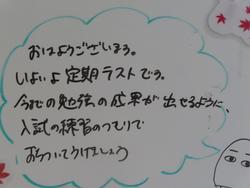 おはようございます。
いよいよ定期ラストです。
今までの勉強の成果が出せるように、
入試の練習のつもりで
おちついてうけましょう